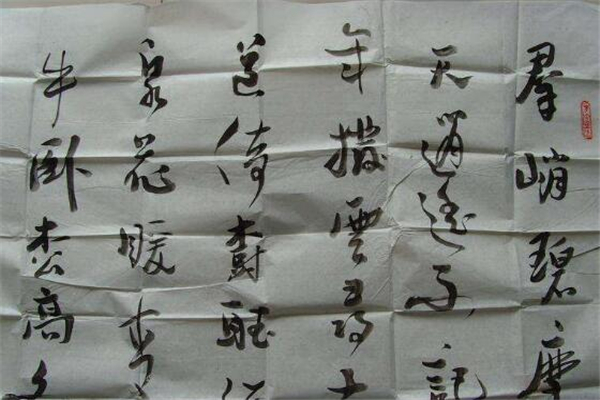 羣峭碧摩
天逍遙不記
年撥雲尋古
道倚樹聽
泉花暖青
牛卧松高